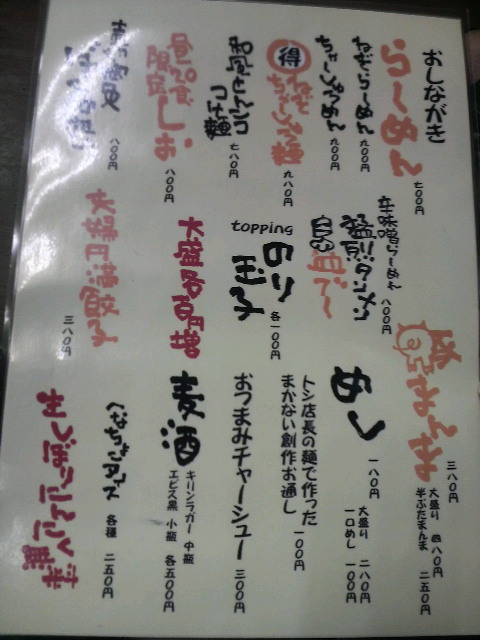 おしながき
らーめん 七〇〇円
ねぎらーめん 八〇〇円
ちゃーしゅうめん 九〇〇円
得 ねぎちゃーしゅう麺 九八〇円
和風 七八〇円
昼20食限定 しお 八〇〇円
八〇〇円
辛味噌らーめん 八〇〇円
猛烈タンメン
血で〜
topping
のり
玉子 各一〇〇円
大盛各百円増
夫婦円満餃子 三八〇円
豚まんま 三八〇円
大盛り 四八〇円
半ぶたまんま 二五〇円
めし 一八〇円
大盛り 二八〇円
一口めし 一〇〇円
トシ店長の麺で作った
まかない創作お通し 一〇〇円
おつまみチャーシュー 三〇〇円
麦酒
キリンラガー 中瓶
エビス黒 小瓶 各五〇〇円
各種 二五〇円
生しぼりにんにく無料